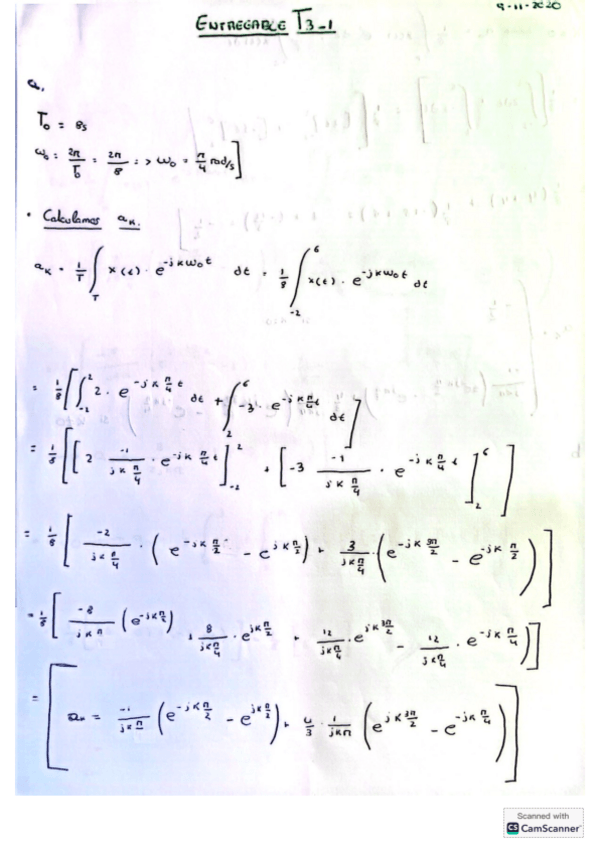 9-11-2020
ENTREGABLE T3-1
a.
T₀ = 8s
ω₀ = 2π/T₀ = 2π/8 => ω₀ = π/4 rad/s]
• Calculamos aₖ.
aₖ = 1/T ∫_T x(t) · e^(-jkω₀t) dt = 1/8 ∫_{-2}^{6} x(t) · e^(-jkω₀t) dt
= 1/8 [∫_{-2}^{2} 2 · e^(-jk π/4 t) dt + ∫_{2}^{6} -3 · e^(-jk π/4 t) dt]
= 1/8 [[2 -1/(jk π/4) · e^(-jk π/4 t)]_{-2}^{2} + [-3 -1/(jk π/4) · e^(-jk π/4 t)]_{2}^{6}]
= 1/8 [-2/(jk π/4) · (e^(-jk π/2) - e^(jk π/2)) + 3/(jk π/4) · (e^(-jk 3π/2) - e^(-jk π/2))]
= 1/8 [-8/(jkπ) (e^(-jk π/2)) + 8/(jk π/4) · e^(jk π/2) + 12/(jk π/4) · e^(jk 3π/2) - 12/(jk π/4) · e^(-jk π/4)]
= [aₖ = -1/(jk π) (e^(-jk π/2) - e^(jk π/2)) + 4/3 · 1/(jkπ) (e^(jk 3π/2) - e^(-jk π/4))]
Scanned with
CS CamScanner